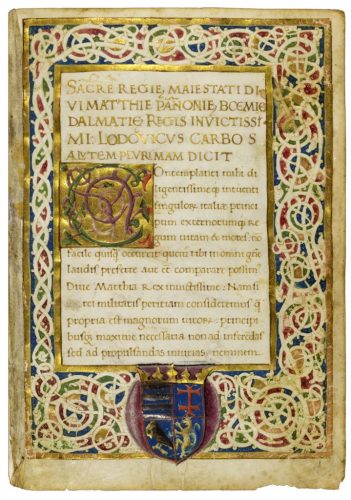 SACRE REGIE, MAIESTATI DI
VI MATTHIE PÃNONIE, BOEMIE
DALMATIE, REGIS INVICTISSI
MI: LODOVICUS CARBO S
ALUTEM PLURIMAM DICIT
Contemplanti mihi di
ligentissimeq intuenti
singulorũ italię princi
pum externorumq re
gum uitam & mores: nõ
facile quisq occurrit quẽ tibi inuictissime
laudis preferre aut comparare possim
Diue Matthia Rex inuictissime: Nam si
rei militaris peritiam consideremus q
propria est magnorum uirorũ: principi
busq maxime necessaria non ad inferẽdas
sed ad propulsandas iniurias: neminem